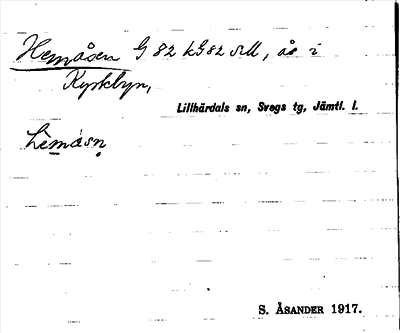 Hemåsen G 82 k G 82 NM, ås i
Kyrkbyn,
Lillhärdals sn, Svegs tg, Jämtl. l.
hèmåsn
S. ÅSANDER 1917.